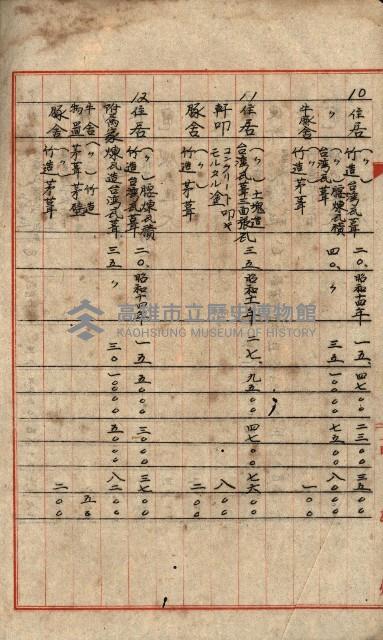 10 住居 (〃) 竹造台湾瓦葺 二〇、 昭和十四年 一五、 四七〇〇 二三〇〇 三五〇
〃 (〃) 腰煉瓦積 台湾瓦葺 四〇、 〃 三五、 一〇〇〇〇 七五〇〇 八〇〇
牛豚舍 (〃) 竹造茅葺 一〇〇
11 住居 (〃) 土塊造 台湾瓦葺三面張瓦 三五、 昭和十一年 二七、 九五〇〇 四七〇〇 七六〇
軒叩 コンクリート叩キ モルタル塗 八〇
豚舍 (〃) 竹造茅葺 二〇〇
12 住居 (〃) 腰煉瓦積 竹造台湾瓦葺 二〇、 昭和十四年 一五、 五〇〇〇 三〇〇〇 三七〇
附属家 煉瓦造台湾瓦葺 三五、 〃 三〇、 一〇〇〇〇 五〇〇〇 八二〇
牛舍 (〃) 竹造
物置 茅葺茅壁 五〇
豚舍 竹造茅葺 二〇〇
高雄市立歷史博物館
KAOHSIUNG MUSEUM OF HISTORY